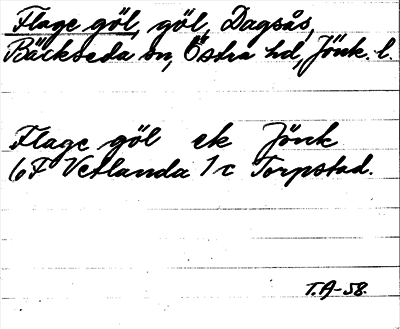 Flage göl, göl, Dagsås,
Bäckseda sn, Östra hd, Jönk. l.
Flage göl ek Jönk
6F Vetlanda 7c Torpstad.
T.A-58.